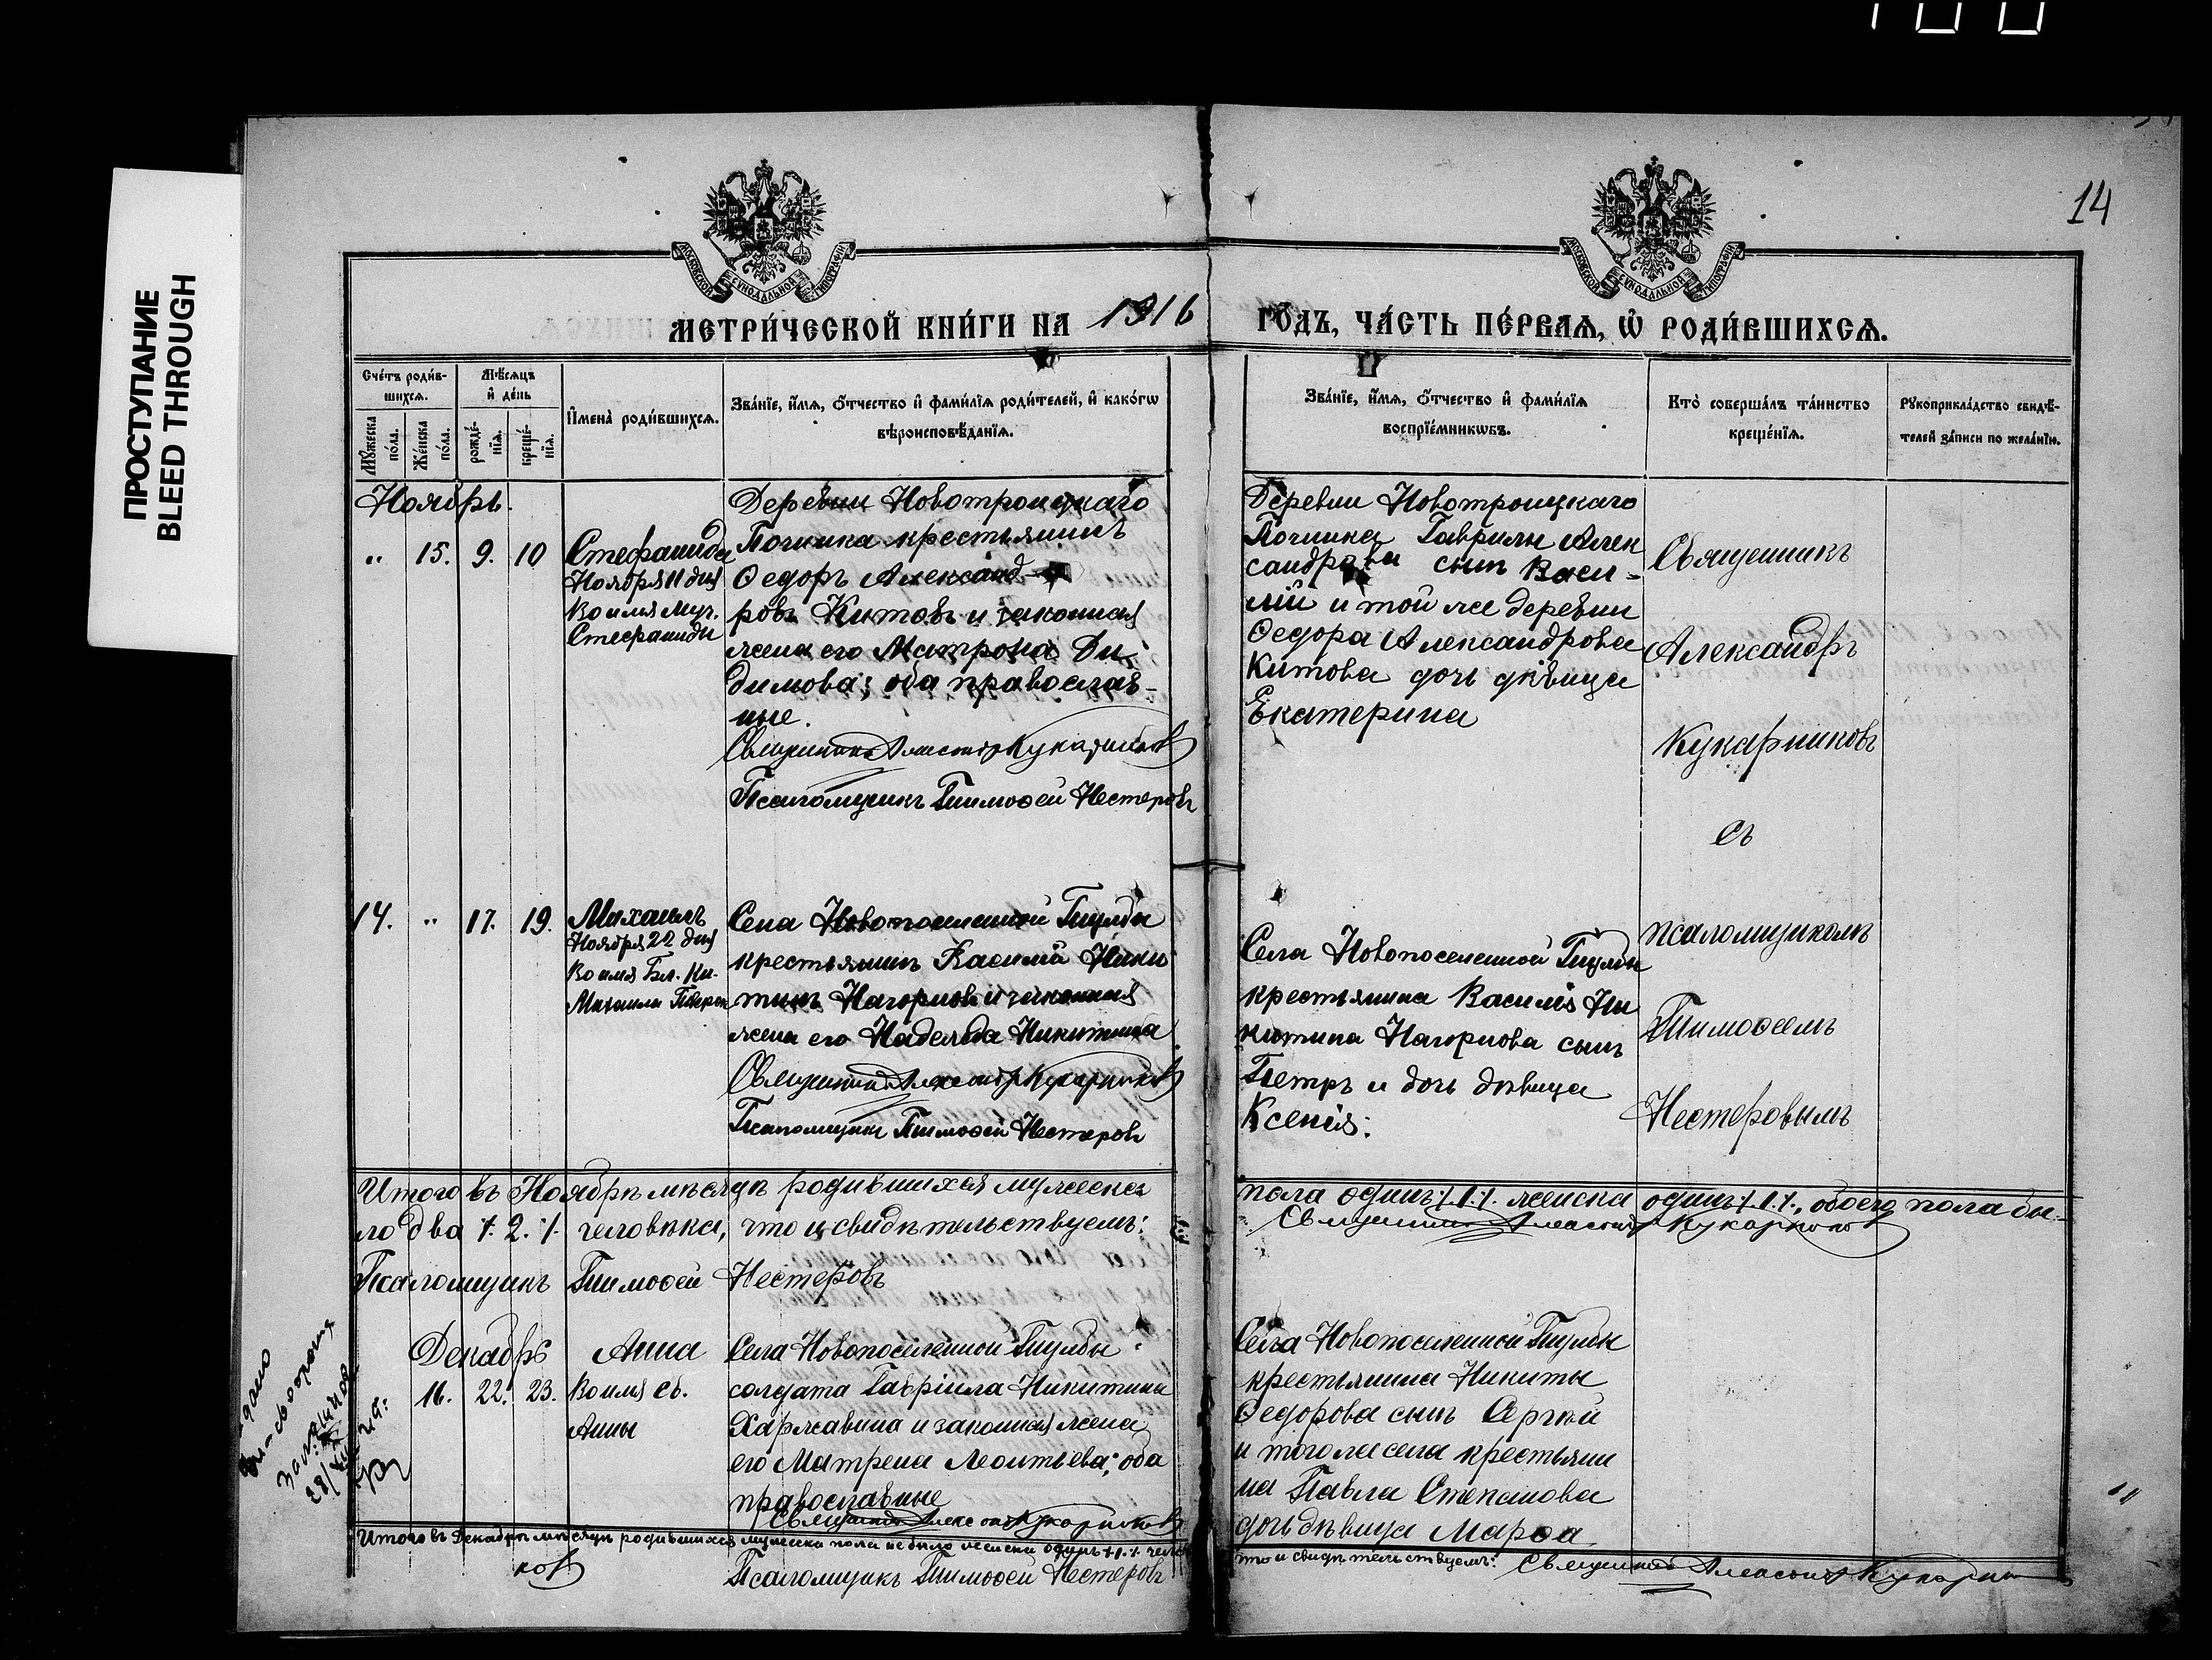 ПРОСТУПАНИЕ
BLEED THROUGH
14
МОСКОВСКОЙ СѴНОДАЛЬНОЙ ТИПОГРАФІИ
МОСКОВСКОЙ СѴНОДАЛЬНОЙ ТИПОГРАФІИ
МЕТРИ́ЧЕСКОЙ КНИ́ГИ НА 1916 ГО́ДЪ, ЧА́СТЬ ПЕ́РВАѦ, Ѡ҆ РОДИ́ВШИХСѦ.
Сче́тъ роди́в-
шихсѧ.
Мꙋ́жеска по́ла.
Же́нска по́ла.
Мѣ́сѧцъ
и҆ де́нь
рожде́-
нїѧ.
креще́-
нїѧ.
И҆мена̀ роди́вшихсѧ.
Зва́нїе, и҆́мѧ, ѻ҆́тчество и҆ фами́лїѧ роди́телей, и҆ како́гѡ
вѣроисповѣ́данїѧ.
Зва́нїе, и҆́мѧ, ѻ҆́тчество и҆ фами́лїѧ
воспрїе́мникѡвъ.
Кто̀ соверша́лъ та́инство
креще́нїѧ.
Рꙋкоприкла́дство свидѣ́-
телей за́писи по жела́нїю.
Ноябрь.
" 15. 9. 10
Стефанида
Ноября 11 дня
Во имя Муч.
Стефаниды
Деревни Новотроицкаго
Починка крестьянинъ
Ѳедоръ Александ-
ровъ Китовъ и законная
жена его Матрона Ди-
димова; оба православ-
ные.
Священникъ Александръ Кукарниковъ
Псаломщикъ Тимоѳей Нестеровъ
Деревни Новотроицкаго
Починка Гаврилы Алек
сандрова сынъ Васи-
лій и той же деревни
Ѳедора Александрова
Китова дочь дѣвица
Екатерина
Священникъ
Александръ
Кукарниковъ
съ
псаломщикомъ
Тимоѳеемъ
Нестеровымъ
14. " 17. 19.
Михаилъ
Ноября 22 дня
Во имя Бл. Кн.
Михаила Тверск
Села Новопоселенной
крестьянинъ Василій Ники
тинъ Нагорновъ и законная
жена его Надежда Никитина
Священникъ Александръ Кукарниковъ
Псаломщикъ Тимоѳей Нестеровъ
Села Новопоселенной
крестьянина Василія Ни
китина Нагорнова сынъ
Петръ и дочь дѣвица
Ксенія.
Итого въ Ноябрѣ мѣсяцѣ родившихся мужеска пола одинъ /.1./. женска одинъ /.1./., обоего пола бы-
ло два /.2./. человѣка, что и свидѣтельствуемъ: Священникъ Александръ Кукарниковъ
Псаломщикъ Тимоѳей Нестеровъ
Декабрь
16. 22. 23.
Анна
Во имя св.
Анны
Села Новопоселенной
солдата Гавріила Никитина
Харжавина и законная жена
его Матрена Леонтьева; оба
православные
Священникъ Александръ Кукарниковъ
Села Новопоселенной
крестьянина Никиты
Ѳедорова сынъ Сергѣй
и того же села крестьяни
на Павла Степанова
дочь дѣвица Марѳа
Итого въ Декабрѣ мѣсяцѣ родившихся мужеска пола не было женска одинъ /.1./. что и свидѣтельствуемъ: Священникъ Александръ Кукарни
ковъ
Псаломщикъ Тимоѳей Нестеровъ